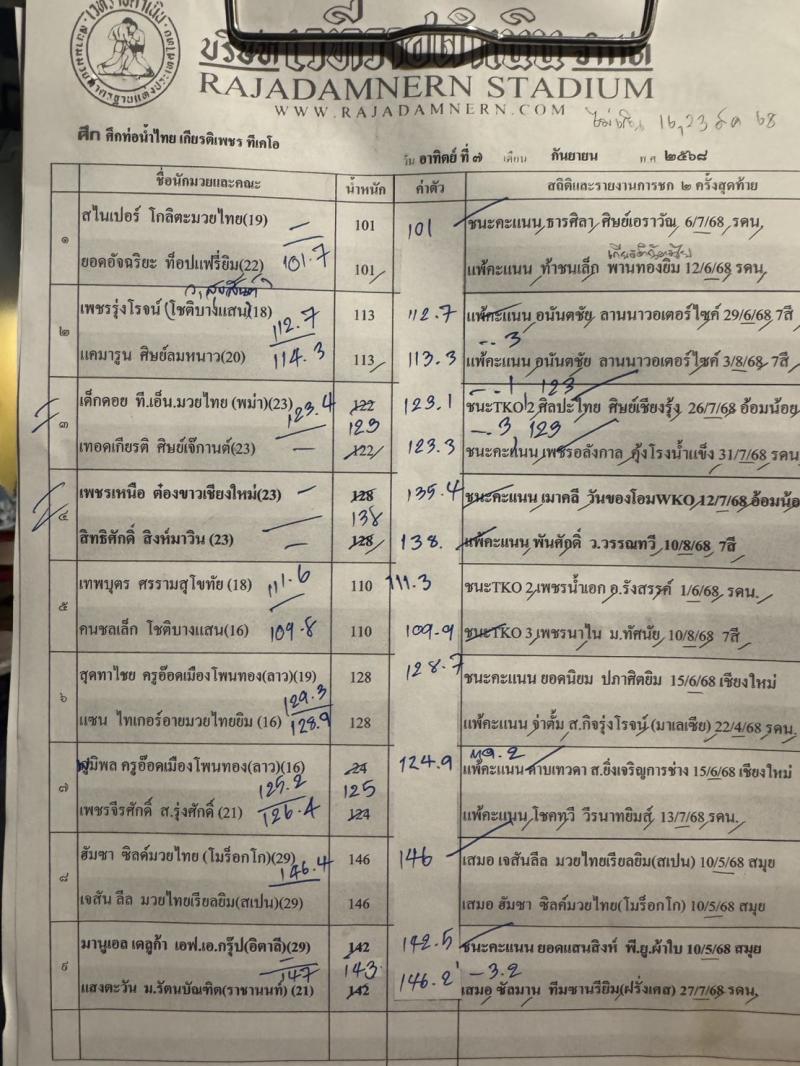 บริษัท เวทีราชดำเนิน จำกัด
RAJADAMNERN STADIUM
WWW.RAJADAMNERN.COM
16, 23 68
ศึก ศึกท่อน้ำไทย เกียรติเพชร ทีเคโอ
วัน อาทิตย์ ที่ ๗ เดือน กันยายน พ.ศ ๒๕๖๘
ชื่อนักมวยและคณะ น้ำหนัก ค่าตัว สถิติและรายงานการชก ๒ ครั้งสุดท้าย
๑ สไนเปอร์ โกลิตะมวยไทย(19) 101 101 ชนะคะแนน ธารศิลา ศิษย์เอราวัณ 6/7/68 รดน.
ยอดอัจฉริยะ ท็อปแฟรี่ยิม(22) 101.7 101 แพ้คะแนน ท้าชนเล็ก พานทองยิม 12/6/68 รดน.
๒ เพชรรุ่งโรจน์ (โชติบางแสน)(18) 112.7 113 112.7 แพ้คะแนน อนันตชัย ลานนาวอเตอร์ไซค์ 29/6/68 7สี
แคมารูน ศิษย์ลมหนาว(20) 114.3 113 113.3 แพ้คะแนน อนันตชัย ลานนาวอเตอร์ไซค์ 3/8/68 7สี
-.3
-.1 123
๓ เด็กดอย ที.เอ็น.มวยไทย (พม่า)(23) 123.4 122 123.1 ชนะTKO 2 ศิลปะไทย ศิษย์เชียงรุ้ง 26/7/68 อ้อมน้อย
123 -.3 123
เทอดเกียรติ ศิษย์เจ๊กานต์(23) 122 123.3 ชนะคะแนน เพชรอลังกาล คุ้งโรงน้ำแข็ง 31/7/68 รดน.
๔ เพชรเหนือ ต๋องขาวเชียงใหม่(23) 128 135.4 ชนะคะแนน เมาคลี วันของโอมWKO 12/7/68 อ้อมน้อ
138
สิทธิศักดิ์ สิงห์มาวิน (23) 128 138. แพ้คะแนน พันศักดิ์ ว.วรรณทวี 10/8/68 7สี
๕ เทพบุตร ศรรามสุโขทัย (18) 111.6 110 111.3 ชนะTKO 2 เพชรน้ำเอก อ.รังสรรค์ 1/6/68 รดน.
คนชลเล็ก โชติบางแสน(16) 109.8 110 109.9 ชนะTKO 3 เพชรนาใน ม.ทัศนัย 10/8/68 7สี
๖ สุดทาไชย ครูอ๊อดเมืองโพนทอง(ลาว)(19) 129.3 128 128.7 ชนะคะแนน ยอดนิยม ปภาศิตยิม 15/6/68 เชียงใหม่
แซน ไทเกอร์อายมวยไทยยิม (16) 128.9 128 แพ้คะแนน จ่าตั้ม ส.กิจรุ่งโรจน์ (มาเลเซีย) 22/4/68 รดน.
๗ ภูมิพล ครูอ๊อดเมืองโพนทอง(ลาว)(16) 24 124.9 แพ้คะแนน ดาบเทวดา ส.ยิ่งเจริญการช่าง 15/6/68 เชียงใหม่
125.2 125
เพชรจีรศักดิ์ ส.รุ่งศักดิ์ (21) 126.4 124 แพ้คะแนน โชคทวี วีรนาทยิมส์ 13/7/68 รดน.
๘ ฮัมซา ซิลด์มวยไทย (โมร็อกโก)(29) 146.4 146 146 เสมอ เจสันลีล มวยไทยเรียลยิม(สเปน) 10/5/68 สมุย
เจสัน ลีล มวยไทยเรียลยิม(สเปน)(29) 146 เสมอ ฮัมซา ซิลด์มวยไทย(โมร็อกโก) 10/5/68 สมุย
๙ มานูเอล เดลูก้า เอฟ.เอ.กรุ๊ป(อิตาลี)(29) 142 142.5 ชนะคะแนน ยอดแสนสิงห์ พี.ยู.ผ้าใบ 10/5/68 สมุย
147 143 146.2 -3.2
แสงตะวัน ม.รัตนบัณฑิต(ราชานนท์) (21) 142 เสมอ ซัลมาน ทีมซานรียิม(ฝรั่งเศส) 27/7/68 รดน.